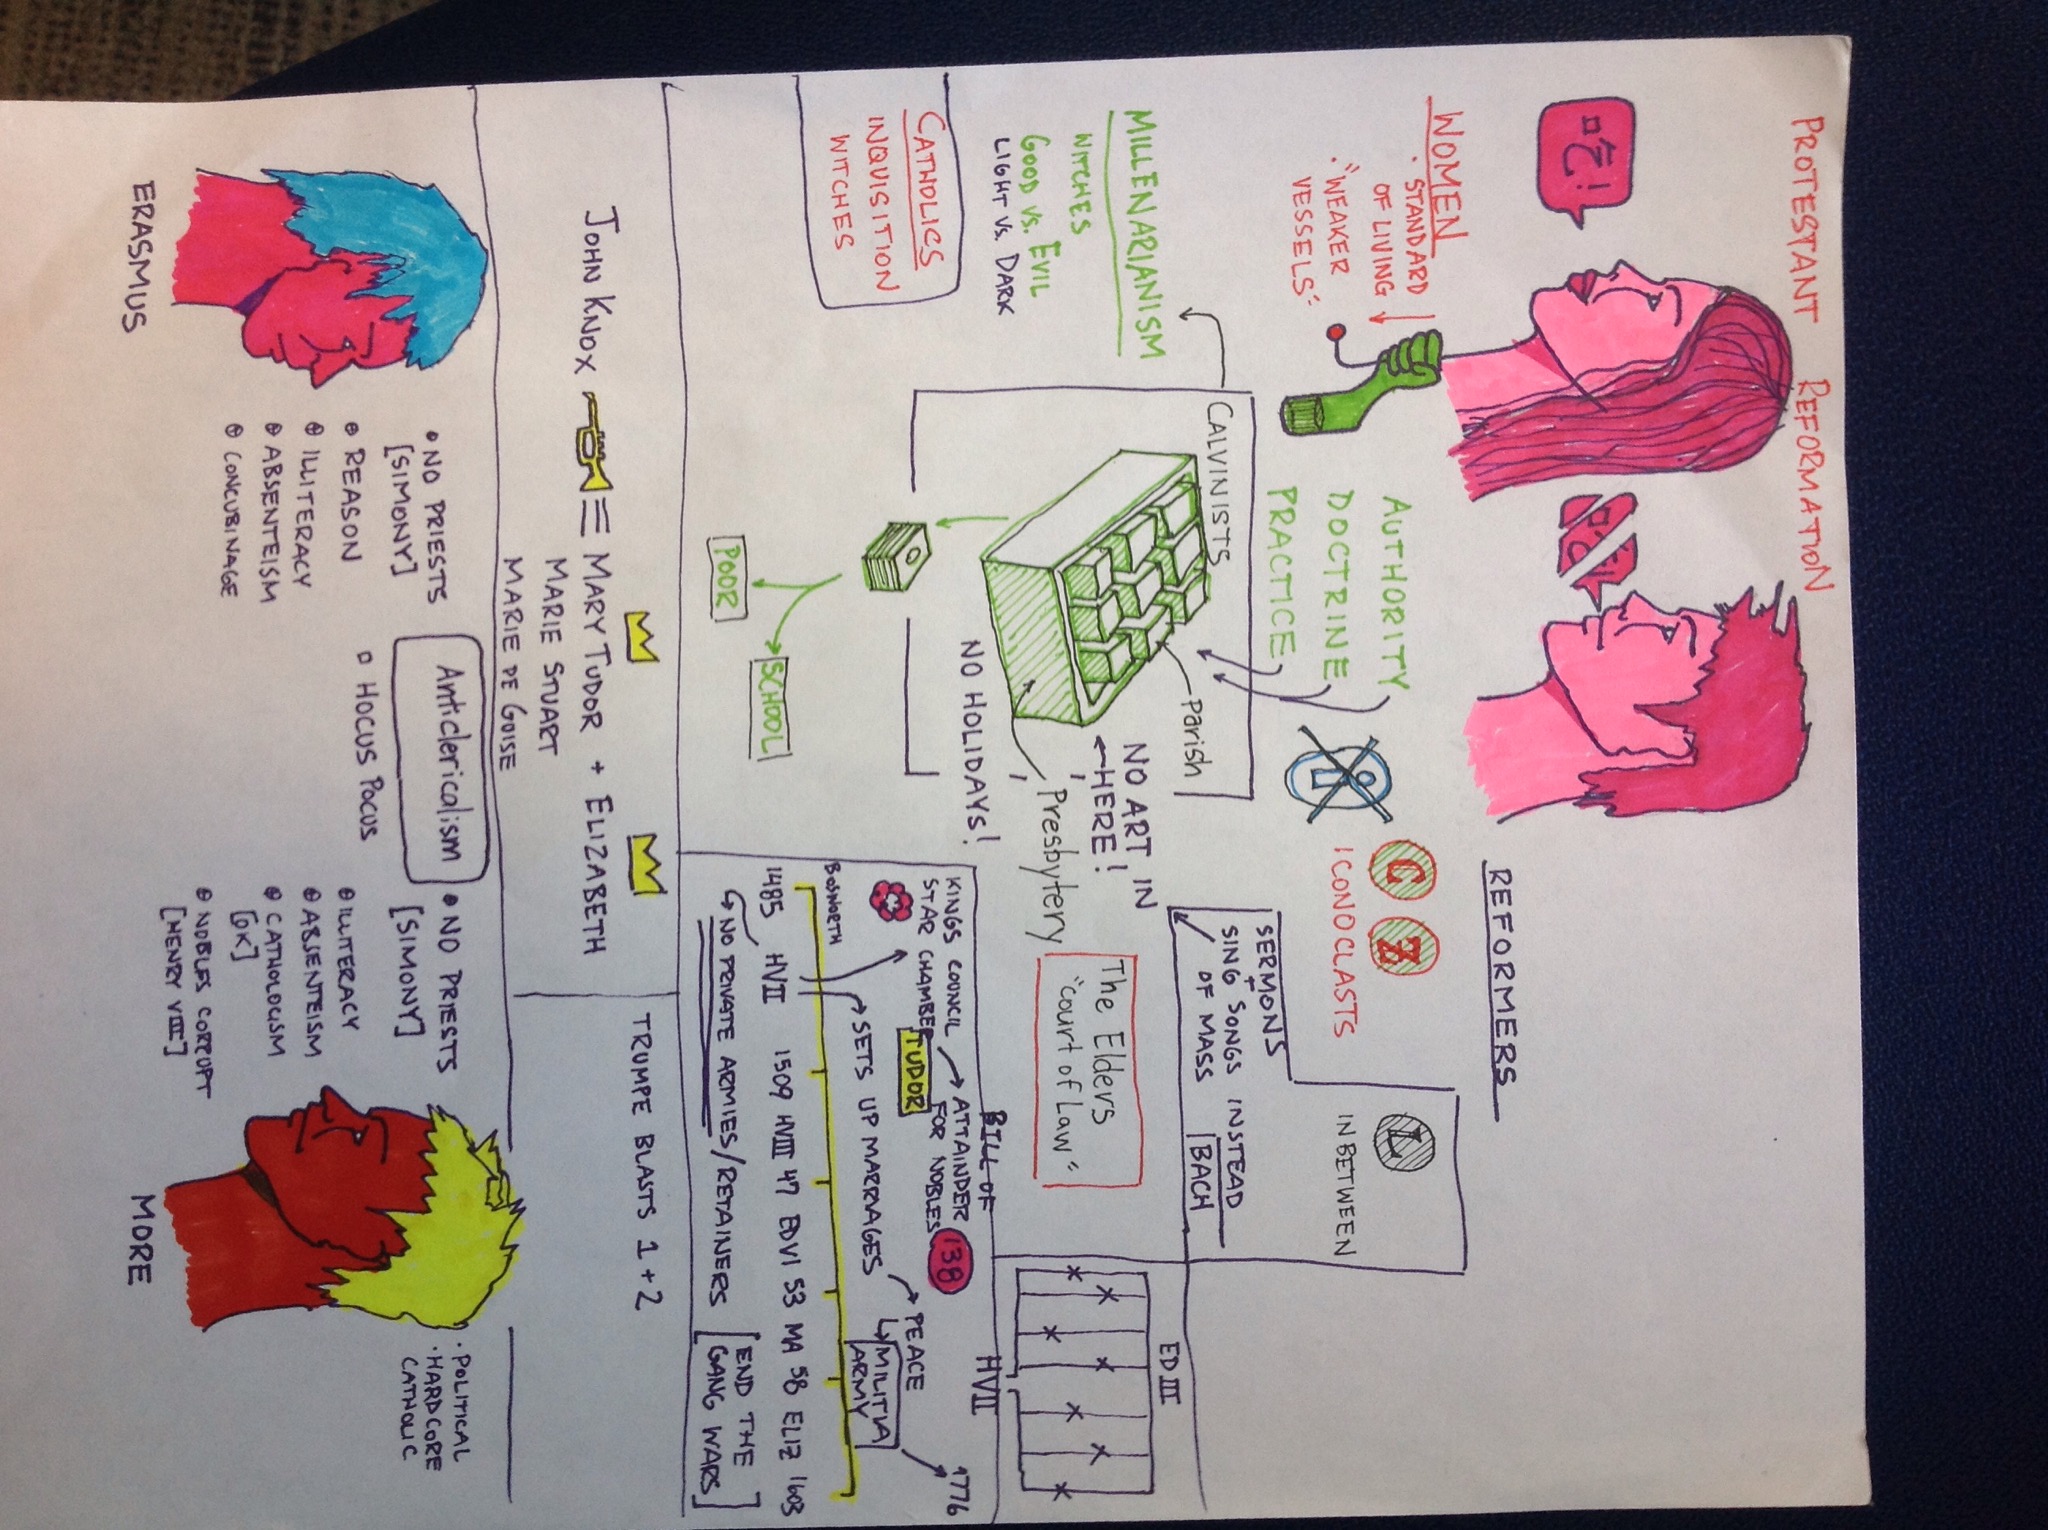 PROTESTANT REFORMATION
WOMEN
• STANDARD
OF LIVING ↓
• "WEAKER
VESSELS"
REFORMERS
AUTHORITY
DOCTRINE
PRACTICE
C Z
ICONOCLASTS
L
IN BETWEEN
SERMONS
+
SING SONGS INSTEAD
OF MASS BACH
MILLENARIANISM
WITCHES
GOOD VS. EVIL
LIGHT VS. DARK
CATHOLICS
INQUISITION
WITCHES
CALVINISTS
Parish
NO ART IN
HERE!
Presbytery
NO HOLIDAYS!
POOR
SCHOOL
The Elders
"court of Law"
ED III
HVII
KINGS COUNCIL → ATTAINDER
BILL OF
STAR CHAMBER FOR NOBLES 138
TUDOR
SETS UP MARRAGES → PEACE
MILITIA
ARMY
1776
BOSWORTH
1485 HVII 1509 HVIII 47 EDVI 53 MA 58 ELIZ 1603
NO PRIVATE ARMIES/RETAINERS [END THE
GANG WARS]
JOHN KNOX MARY TUDOR + ELIZABETH
MARIE STUART
MARIE DE GUISE
TRUMPE BLASTS 1 + 2
ERASMUS
• NO PRIESTS
[SIMONY]
REASON
ILLITERACY
ABSENTEISM
CONCUBINAGE
Anticlericalism
HOCUS POCUS
• NO PRIESTS
[SIMONY]
ILLITERACY
ABSENTEISM
CATHOLOCISM
[OK]
NOBLES CORRUPT
[HENRY VIII]
MORE
• POLITICAL
• HARDCORE
CATHOLIC